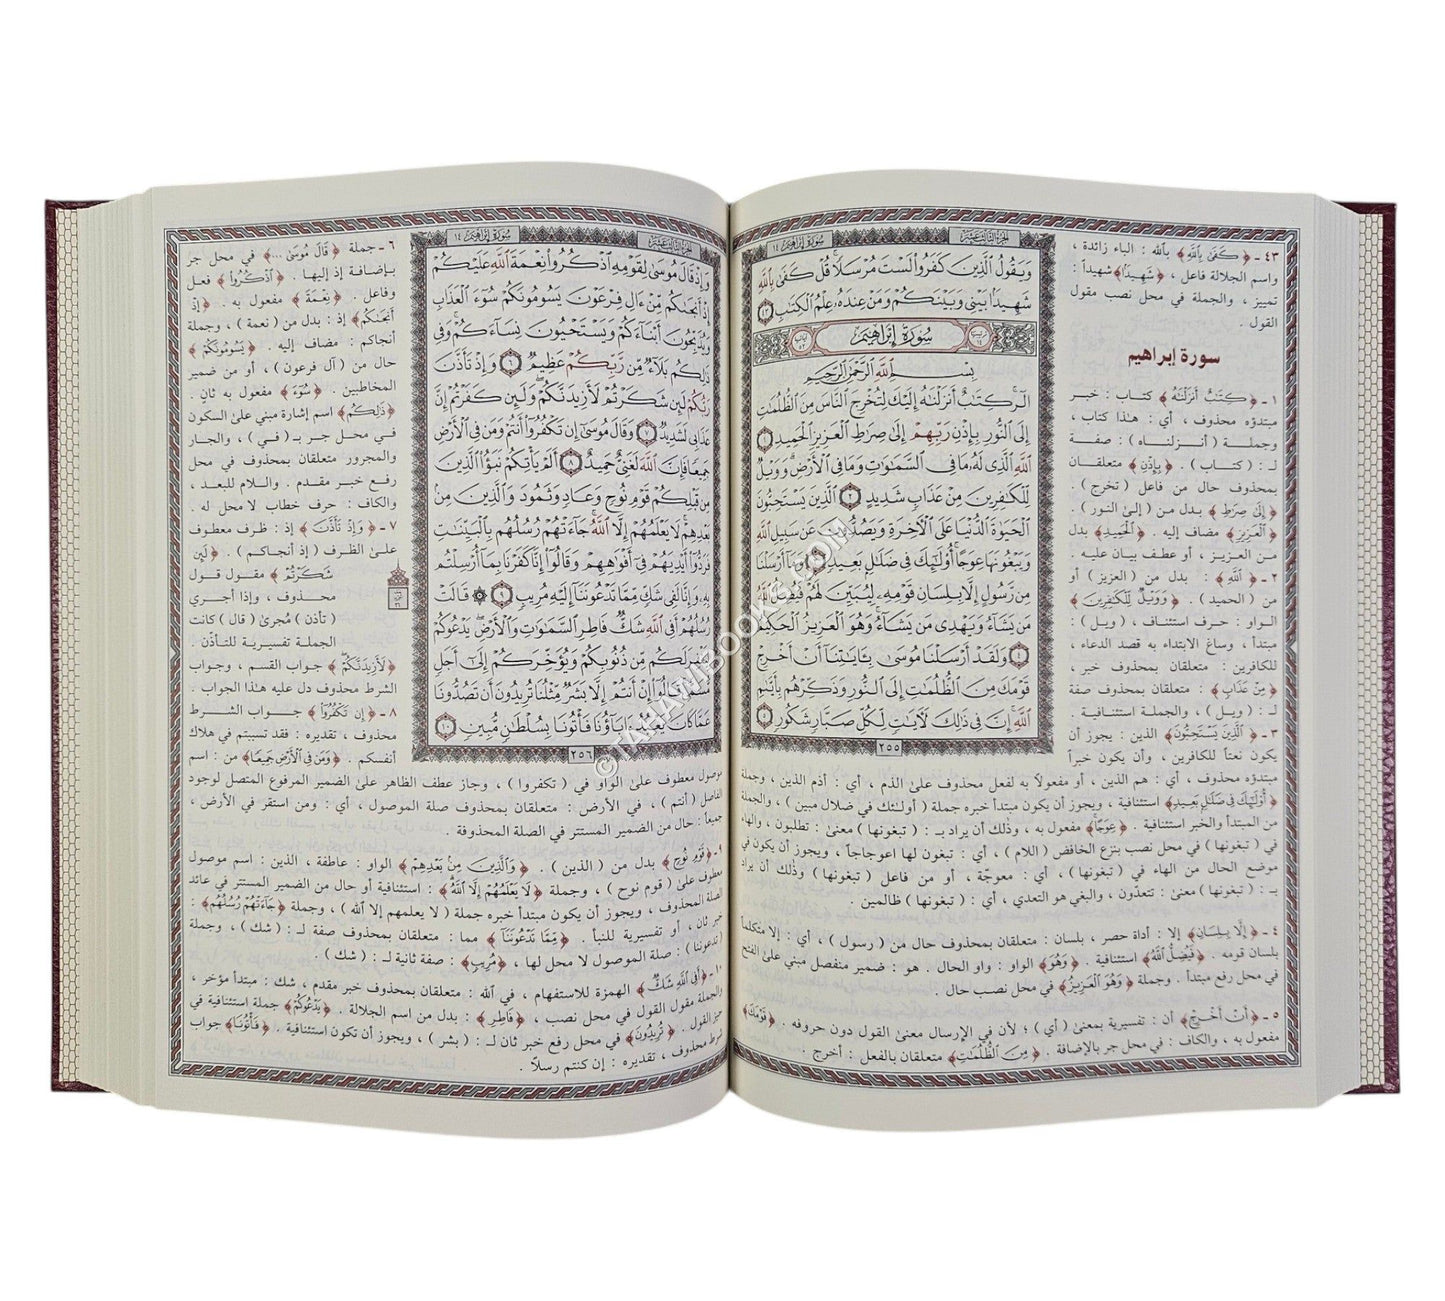 الجزء الثالث عشر
سورة إبراهيم ١٤
وَيَقُولُ ٱلَّذِينَ كَفَرُوا۟ لَسْتَ مُرْسَلًا ۚ قُلْ كَفَىٰ بِٱللَّهِ
شَهِيدًۢا بَيْنِى وَبَيْنَكُمْ وَمَنْ عِندَهُۥ عِلْمُ ٱلْكِتَٰبِ ٤٣
سُورَةُ إِبْرَاهِيمَ
بِسْمِ ٱللَّهِ ٱلرَّحْمَٰنِ ٱلرَّحِيمِ
الٓر ۚ كِتَٰبٌ أَنزَلْنَٰهُ إِلَيْكَ لِتُخْرِجَ ٱلنَّاسَ مِنَ ٱلظُّلُمَٰتِ
إِلَى ٱلنُّورِ بِإِذْنِ رَبِّهِمْ إِلَىٰ صِرَٰطِ ٱلْعَزِيزِ ٱلْحَمِيدِ ١
ٱللَّهِ ٱلَّذِى لَهُۥ مَا فِى ٱلسَّمَٰوَٰتِ وَمَا فِى ٱلْأَرْضِ ۗ وَوَيْلٌ
لِّلْكَٰفِرِينَ مِنْ عَذَابٍ شَدِيدٍ ٢ ٱلَّذِينَ يَسْتَحِبُّونَ
ٱلْحَيَوٰةَ ٱلدُّنْيَا عَلَى ٱلْءَاخِرَةِ وَيَصُدُّونَ عَن سَبِيلِ ٱللَّهِ
وَيَبْغُونَهَا عِوَجًا ۚ أُو۟لَٰٓئِكَ فِى ضَلَٰلٍۭ بَعِيدٍ ٣ وَمَآ أَرْسَلْنَا
مِن رَّسُولٍ إِلَّا بِلِسَانِ قَوْمِهِۦ لِيُبَيِّنَ لَهُمْ ۖ فَيُضِلُّ ٱللَّهُ
مَن يَشَآءُ وَيَهْدِى مَن يَشَآءُ ۚ وَهُوَ ٱلْعَزِيزُ ٱلْحَكِيمُ
٤ وَلَقَدْ أَرْسَلْنَا مُوسَىٰ بِـَٔايَٰتِنَآ أَنْ أَخْرِجْ
قَوْمَكَ مِنَ ٱلظُّلُمَٰتِ إِلَى ٱلنُّورِ وَذَكِّرْهُم بِأَيَّىٰمِ
ٱللَّهِ ۚ إِنَّ فِى ذَٰلِكَ لَءَايَٰتٍ لِّكُلِّ صَبَّارٍ شَكُورٍ ٥
٢٥٥
٤٣ ـ ﴿ كَفَىٰ بِٱللَّهِ ﴾ بالله : الباء زائدة ،
واسم الجلالة فاعل ، ﴿ شَهِيدًا ﴾ شهيداً :
تمييز ، والجملة في محل نصب مقول
القول .
سورة إبراهيم
١ ـ ﴿ كِتَٰبٌ أَنزَلْنَٰهُ ﴾ كتاب : خبر
مبتدؤه محذوف ، أي : هذا كتاب ،
وجملة ( أنزلناه ) : صفة
لـ : ( كتاب ) . ﴿ بِإِذْنِ ﴾ متعلقان
بمحذوف حال من فاعل ( تخرج ) .
﴿ إِلَىٰ صِرَٰطِ ﴾ بدل من ( إلى النور ) .
﴿ ٱلْعَزِيزِ ﴾ مضاف إليه . ﴿ ٱلْحَمِيدِ ﴾ بدل
من العزيز ، أو عطف بيان عليه .
٢ ـ ﴿ ٱللَّهِ ﴾ : بدل من ( العزيز ) أو
من ( الحميد ) . ﴿ وَوَيْلٌ لِّلْكَٰفِرِينَ ﴾
الواو : حرف استئناف ، ( ويل ) :
مبتدأ ، وساغ الابتداء به قصد الدعاء ،
للكافرين : متعلقان بمحذوف خبر ،
﴿ مِنْ عَذَابٍ ﴾ : متعلقان بمحذوف صفة
لـ : ( ويل ) ، والجملة استئنافية .
٣ ـ ﴿ ٱلَّذِينَ يَسْتَحِبُّونَ ﴾ الذين : يجوز أن
يكون نعتاً للكافرين ، وأن يكون خبراً
مبتدؤه محذوف ، أي : هم الذين ، أو مفعولاً به لفعل محذوف على الذم ، أي : أذم الذين ، وجملة
﴿ أُو۟لَٰٓئِكَ فِى ضَلَٰلٍۭ بَعِيدٍ ﴾ استئنافية ، ويجوز أن يكون مبتدأ خبره جملة ( أولئك في ضلال مبين ) ، والجملة
من المبتدأ والخبر استئنافية . ﴿ عِوَجًا ﴾ مفعول به ، وذلك أن يراد بـ : ( تبغونها ) معنى : تطلبون ، والهاء
في ( تبغونها ) في محل نصب بنزع الخافض ( اللام ) ، أي : تبغون لها اعوجاجاً ، ويجوز أن يكون في
موضع الحال من الهاء في ( تبغونها ) ، أي : معوجّة ، أو من فاعل ( تبغونها ) وذلك أن يراد
بـ : ( تبغونها ) معنى : تتعدّون ، والبغي هو التعدي ، أي : ( تبغونها ) ظالمين .
٤ ـ ﴿ إِلَّا بِلِسَانِ ﴾ إلا : أداة حصر ، بلسان : متعلقان بمحذوف حال من ( رسول ) ، أي : إلا متكلماً
بلسان قومه . ﴿ فَيُضِلُّ ٱللَّهُ ﴾ استئنافية . ﴿ وَهُوَ ﴾ الواو : واو الحال . هو : ضمير منفصل مبني على الفتح
في محل رفع مبتدأ . وجملة ﴿ وَهُوَ ٱلْعَزِيزُ ﴾ في محل نصب حال
٥ ـ ﴿ أَنْ أَخْرِجْ ﴾ أن : تفسيرية بمعنى ( أي ) ؛ لأن في الإرسال معنى القول دون حروفه . ﴿ قَوْمَكَ ﴾
مفعول به ، والكاف : في محل جر بالإضافة . ﴿ مِنَ ٱلظُّلُمَٰتِ ﴾ متعلقان بالفعل : أخرج .
الجزء الثالث عشر
سورة إبراهيم ١٤
وَإِذْ قَالَ مُوسَىٰ لِقَوْمِهِ ٱذْكُرُوا۟ نِعْمَةَ ٱللَّهِ عَلَيْكُمْ
إِذْ أَنجَىٰكُم مِّنْ ءَالِ فِرْعَوْنَ يَسُومُونَكُمْ سُوٓءَ ٱلْعَذَابِ
وَيُذَبِّحُونَ أَبْنَآءَكُمْ وَيَسْتَحْيُونَ نِسَآءَكُمْ ۚ وَفِى
ذَٰلِكُم بَلَآءٌ مِّن رَّبِّكُمْ عَظِيمٌ ٦ وَإِذْ تَأَذَّنَ
رَبُّكُمْ لَئِن شَكَرْتُمْ لَأَزِيدَنَّكُمْ ۖ وَلَئِن كَفَرْتُمْ إِنَّ
عَذَابِى لَشَدِيدٌ ٧ وَقَالَ مُوسَىٰٓ إِن تَكْفُرُوٓا۟ أَنتُمْ وَمَن فِى ٱلْأَرْضِ
جَمِيعًا فَإِنَّ ٱللَّهَ لَغَنِىٌّ حَمِيدٌ ٨ أَلَمْ يَأْتِكُمْ نَبَؤُا۟ ٱلَّذِينَ
مِن قَبْلِكُمْ قَوْمِ نُوحٍ وَعَادٍ وَثَمُودَ ۛ وَٱلَّذِينَ مِنۢ
بَعْدِهِمْ ۛ لَا يَعْلَمُهُمْ إِلَّا ٱللَّهُ ۚ جَآءَتْهُمْ رُسُلُهُم بِٱلْبَيِّنَٰتِ
فَرَدُّوٓا۟ أَيْدِيَهُمْ فِىٓ أَفْوَٰهِهِمْ وَقَالُوٓا۟ إِنَّا كَفَرْنَا بِمَآ أُرْسِلْتُم
بِهِۦ وَإِنَّا لَفِى شَكٍّ مِّمَّا تَدْعُونَنَآ إِلَيْهِ مُرِيبٍ ٩ ۞ قَالَتْ
رُسُلُهُمْ أَفِى ٱللَّهِ شَكٌّ فَاطِرِ ٱلسَّمَٰوَٰتِ وَٱلْأَرْضِ ۖ يَدْعُوكُمْ
لِيَغْفِرَ لَكُم مِّن ذُنُوبِكُمْ وَيُؤَخِّرَكُمْ إِلَىٰٓ أَجَلٍ
مُّسَمًّى ۚ قَالُوٓا۟ إِنْ أَنتُمْ إِلَّا بَشَرٌ مِّثْلُنَا تُرِيدُونَ أَن تَصُدُّونَا
عَمَّا كَانَ يَعْبُدُ ءَابَآؤُنَا فَأْتُونَا بِسُلْطَٰنٍ مُّبِينٍ ١٠
٢٥٦
٦ ـ جملة ﴿ قَالَ مُوسَىٰ ... ﴾ في محل جر
بإضافة إذ إليها . ﴿ ٱذْكُرُوا۟ ﴾ فعل
وفاعل . ﴿ نِعْمَةَ ﴾ مفعول به . ﴿ إِذْ
أَنجَىٰكُم ﴾ إذ : بدل من ( نعمة ) ، وجملة
أنجاكم : مضاف إليه . ﴿ يَسُومُونَكُمْ ﴾
حال من ( آل فرعون ) ، أو من ضمير
المخاطبين . ﴿ سُوٓءَ ﴾ مفعول به ثانٍ .
﴿ ذَٰلِكُم ﴾ اسم إشارة مبني على السكون
في محل جر بـ ( في ) ، والجار
والمجرور متعلقان بمحذوف في محل
رفع خبر مقدم . واللام للبعد ،
والكاف : حرف خطاب لا محل له .
٧ ـ ﴿ وَإِذْ تَأَذَّنَ ﴾ إذ : ظرف معطوف
على الظرف ( إذ أنجاكم ) . ﴿ لَئِن
شَكَرْتُمْ ﴾ مقول قول
محذوف ، وإذا أجري
( تأذن ) مُجرى ( قال ) كانت
الجملة تفسيرية للتأذن .
﴿ لَأَزِيدَنَّكُمْ ﴾ جواب القسم ، وجواب
الشرط محذوف دل عليه هذا الجواب .
٨ ـ ﴿ إِن تَكْفُرُوٓا۟ ﴾ جواب الشرط
محذوف ، تقديره : فقد تسببتم في هلاك
أنفسكم . ﴿ وَمَن فِى ٱلْأَرْضِ جَمِيعًا ﴾ من : اسم
موصول معطوف على الواو في ( تكفروا ) ، وجاز عطف الظاهر على الضمير المرفوع المتصل لوجود
الفاصل ( أنتم ) ، في الأرض : متعلقان بمحذوف صلة الموصول ، أي : ومن استقر في الأرض ،
جميعاً : حال من الضمير المستتر في الصلة المحذوفة .
٩ ـ ﴿ قَوْمِ نُوحٍ ﴾ بدل من ( الذين ) . ﴿ وَٱلَّذِينَ مِنۢ بَعْدِهِمْ ﴾ الواو : عاطفة ، الذين : اسم موصول
معطوف على ( قوم نوح ) ، وجملة ﴿ لَا يَعْلَمُهُمْ إِلَّا ٱللَّهُ ﴾ : استئنافية أو حال من الضمير المستتر في عائد
الصلة المحذوف ، ويجوز أن يكون مبتدأ خبره جملة ( لا يعلمهم إلا الله ) ، وجملة ﴿ جَآءَتْهُمْ رُسُلُهُم ﴾ :
خبر ثان ، أو تفسيرية للنبأ . ﴿ مِّمَّا تَدْعُونَنَآ ﴾ مما : متعلقان بمحذوف صفة لـ : ( شك ) ، وجملة
( تدعوننا ) : صلة الموصول لا محل لها . ﴿ مُرِيبٍ ﴾ : صفة ثانية لـ : ( شك ) .
١٠ ـ ﴿ أَفِى ٱللَّهِ شَكٌّ ﴾ الهمزة للاستفهام ، في الله : متعلقان بمحذوف خبر مقدم ، شك : مبتدأ مؤخر ،
والجملة مقول القول في محل نصب ، ﴿ فَاطِرِ ﴾ : بدل من اسم الجلالة . ﴿ يَدْعُوكُمْ ﴾ جملة استئنافية في
حيز القول . ﴿ تُرِيدُونَ ﴾ في محل رفع خبر ثان لـ : ( بشر ) ، ويجوز أن تكون استئنافية . ﴿ فَأْتُونَا ﴾ جواب
شرط محذوف ، تقديره : إن كنتم رسلاً .
© TAHAWIBOOKS.COM